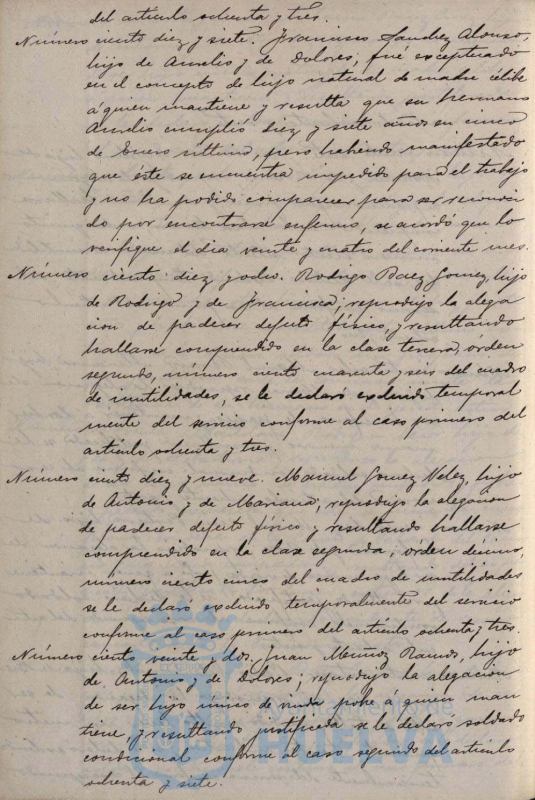 del artículo ochenta y tres.
Número ciento diez y siete. Francisco Sanchez Alonso,
hijo de Aurelio y de Dolores; fué exceptuado
en el concepto de hijo natural de madre célibe
á quien mantiene y resulta que su hermano
Aurelio cumplió diez y siete años en cinco
de Enero último, pero habiendo manifestado
que éste se encuentra impedido para el trabajo
y no ha podido comparecer para ser reconoci
do por encontrarse enfermo, se acordó que lo
verifique el dia veinte y cuatro del corriente mes.
Número ciento diez y ocho. Rodrigo Baez Gomez, hijo
de Rodrigo y de Francisca; reprodujo la alega
cion de padecer defecto físico, y resultando
hallarse comprendido en la clase tercera, órden
segundo, número ciento cuarenta y seis del cuadro
de inutilidades, se le declaró excluido temporal
mente del servicio conforme al caso primero del
artículo ochenta y tres.
Número ciento diez y nueve. Manuel Gomez Velez, hijo
de Antonio y de Mariana; reprodujo la alegacion
de padecer defecto físico y resultando hallarse
comprendido en la clase segunda, órden décimo,
número ciento cinco del cuadro de inutilidades
se le declaró excluido temporalmente del servicio
conforme al caso primero del artículo ochenta y tres.
Número ciento veinte y dos. Juan Muñoz Ramos, hijo
de Antonio y de Dolores; reprodujo la alegacion
de ser hijo único de viuda pobre á quien man
tiene, y resultando justificada se le declaró soldado
condicional conforme al caso segundo del artículo
ochenta y siete.
HUELVA